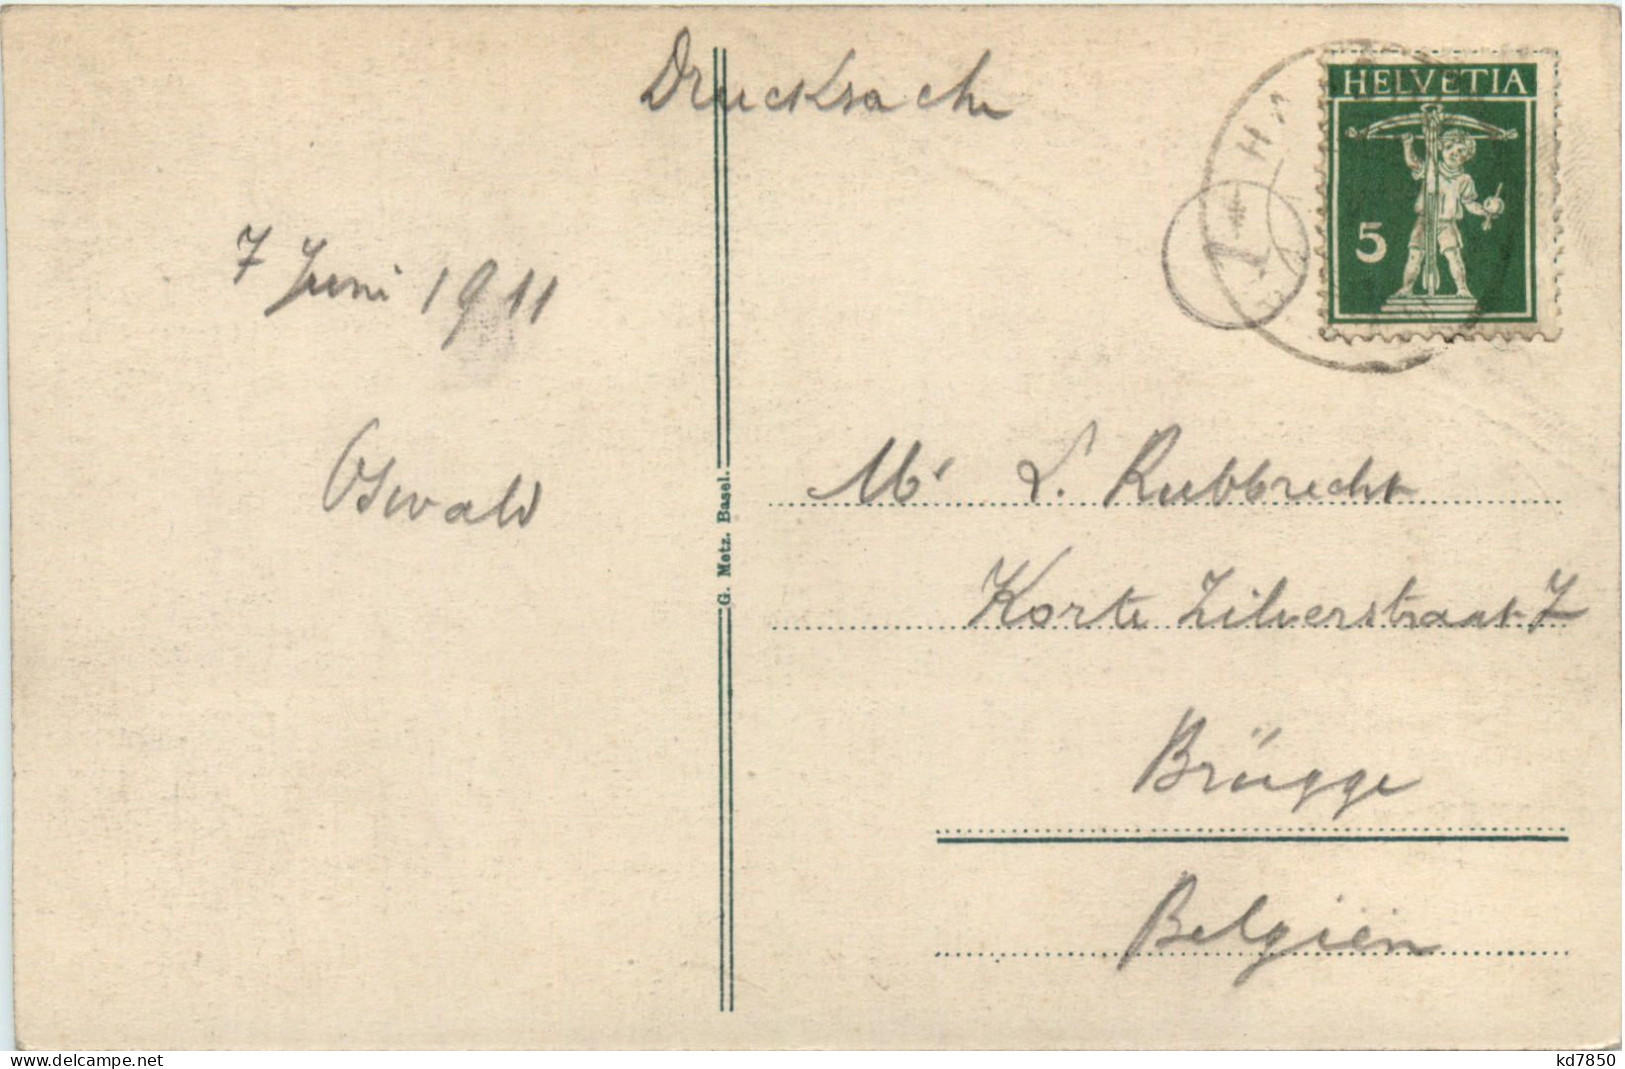 Drucksache
HELVETIA
5
7 Juni 1911
Oswald
G. Metz. Basel.
Mr L. Rubbrecht
Korte Zilverstraat 7
Brügge
Belgien
www.delcampe.net
kd7850